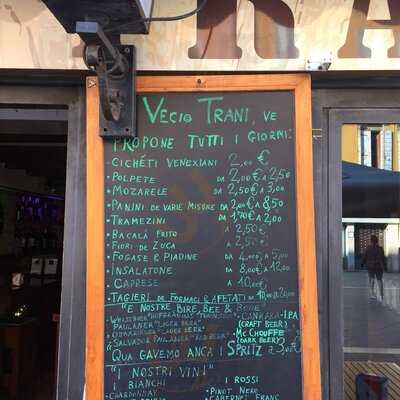 VECIO TRANI
RA
VECIO TRANI, VE
PROPONE TUTTI I GIORNI:
· CICHÉTI VENEXIANI 2,00 €
· POLPETE DA 2,00 € A 2,50
· MOZARELE DA 2,50 € A 3,00
· PANINI DE VARIE MISURE DA 2,00 € A 8,50
· TRAMEZINI DA 1,70 € A 2,00
· BACALÀ FRITO A 2,50 €
· FIORI DE ZUCA A 2,50 €
· FOGASE & PIADINE DA 4,00 € A 5,00
· INSALATONE DA 8,00 € A 12,00
· CAPRESE A 10,00 €
· TAGIERI DE FORMAGI & AFETATI DA
"E NOSTRE BIRE, BEE & BONE"
CANKARA-IPA
PAULANER "LIGER BEER" (CRAFT BEER)
MC CHOUFFE
(DARK BEER)
"SALVADOR PAULANER" RED BEER"
QUA GAVEMO ANCA I SPRITZ A 3,00 €
"I NOSTRI VINI"
I BIANCHI I ROSSI
CHARDONNAY PINOT NERO
CABERNET FRANC